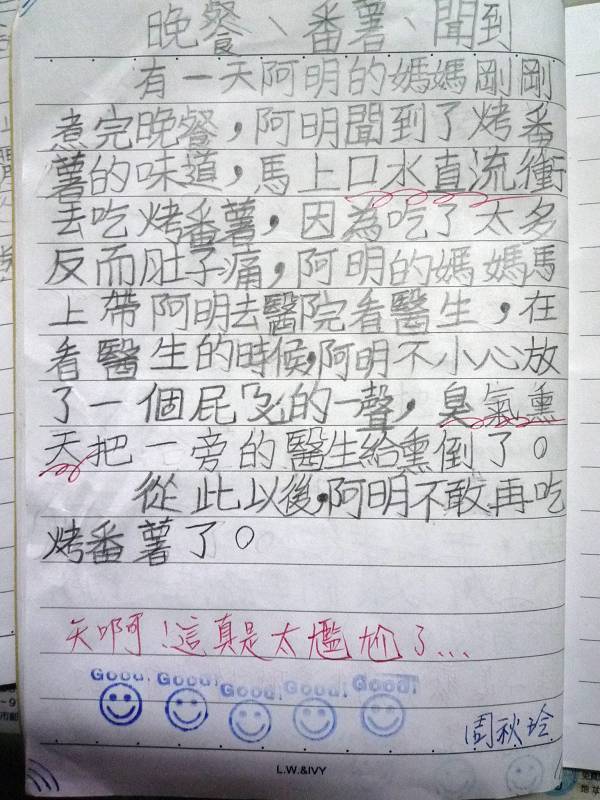 晚餐、番薯、聞到
有一天阿明的媽媽剛剛
煮完晚餐，阿明聞到了烤番
薯的味道，馬上口水直流衝
去吃烤番薯，因為吃了太多
反而肚子痛，阿明的媽媽馬
上帶阿明去醫院看醫生，在
看醫生的時候，阿明不小心放
了一個屁「ㄆㄥ的一聲，臭氣熏
天把一旁的醫生給熏倒了。
從此以後，阿明不敢再吃
烤番薯了。
天啊！這真是太尷尬了...
Good! Good! Good! Good! Good!
周秋玲
L.W.&IVY